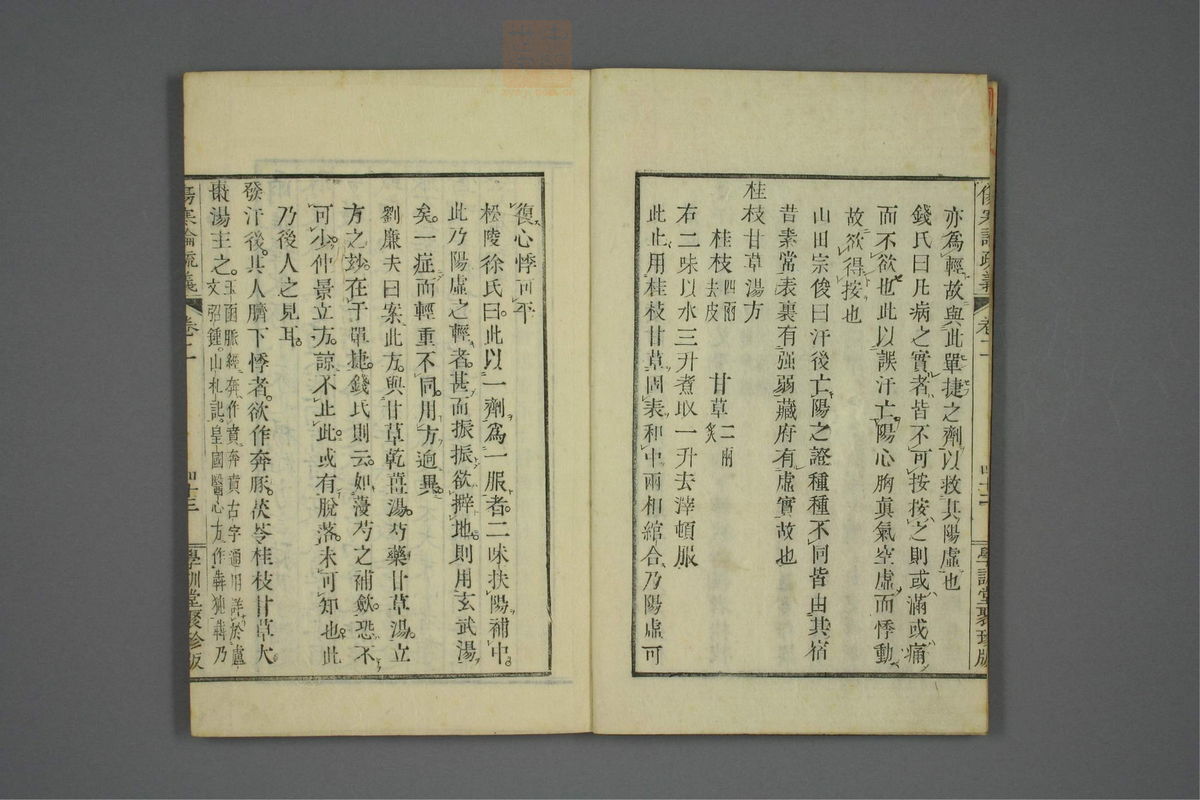 亦爲輕故與此單捷之劑以救其陽虛也
錢氏曰凡病之實者皆不可按按之則或滿或痛
而不欲也此以誤汗亡陽心胸眞氣空虛而悸動
故欲得按也
山田宗俊曰汗後亡陽之證種種不同皆由其宿
昔素常表裏有强弱藏府有虛實故也
桂枝甘草湯方
桂枝四兩去皮 甘草二兩炙
右二味以水三升煮取一升去滓頓服
此止用桂枝甘草固表和中兩相綰合乃陽虛可
復心悸可平
松陵徐氏曰此以一劑爲一服者二味扶陽補中
此乃陽虛之輕者甚而振振欲擗地則用玄武湯
矣一症而輕重不同用方逈異
劉廉夫曰案此方與甘草乾薑湯芍藥甘草湯立
方之玅在于單捷錢氏則云如蔓芍之補歛恐不
可少仲景立方諒不止此或有脫落未可知也此
乃後人之見耳
發汗後其人臍下悸者欲作奔豚茯苓桂枝甘草大
棗湯主之玉函脈經奔作賁奔賁古字通用詳於盧
文弨鍾山札記皇國醫心方作犇㹠犇乃
傷寒論疏義 卷二 四十三 學訓堂聚珍版